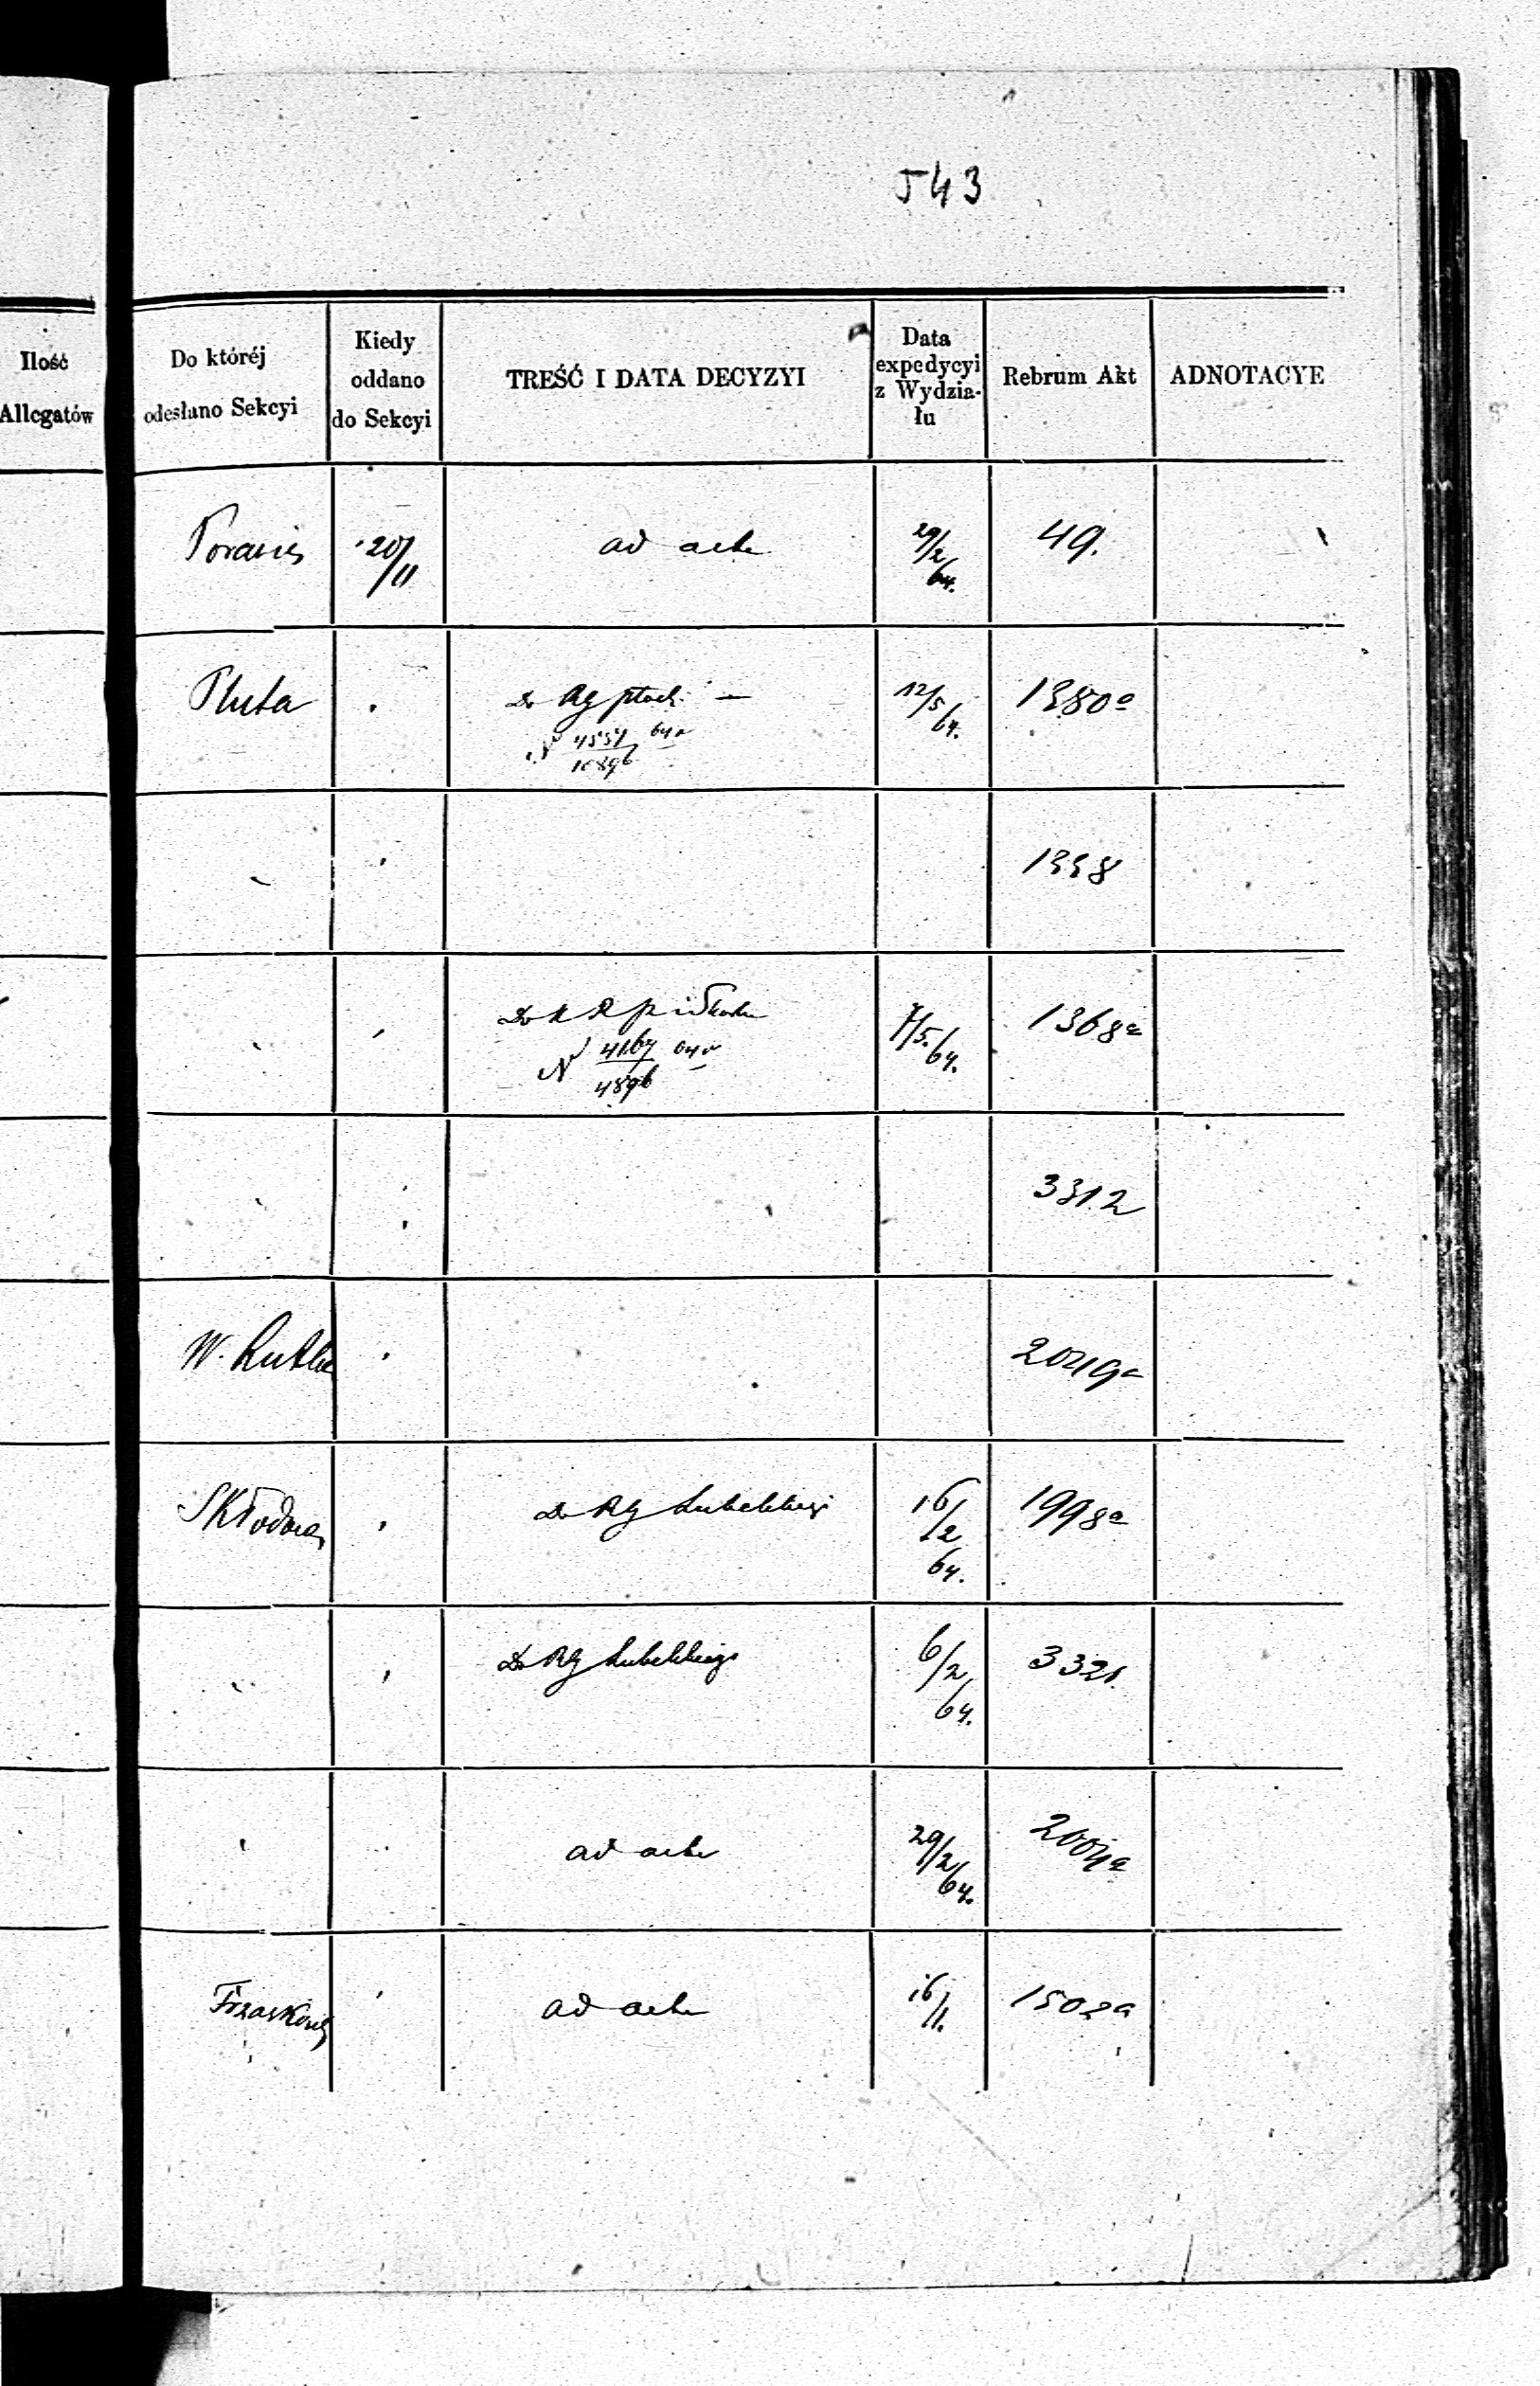 543
Ilość
Allegatów
Do któréj
odesłano Sekcyi
Kiedy
oddano
do Sekcyi
TREŚĆ I DATA DECYZYI
Data
expedycyi
z Wydzia-
łu
Rebrum Akt
ADNOTACYE
20/11
ad acta
29/2 64.
49.
Pluta
Do RG płock. —
N 64 r
12/5 64.
1380a
1338
Do
N 4167/4896 64 r
7/5. 64.
1368a
3312
W.
2049a
Skłodow
Do RG Lubelskiego
16/2 64.
1998a
Do RG Lubelskiego
6/2 64.
3321.
ad acta
29/2 64.
2004a
Trzaskows
ad acta
16/11.
1502a